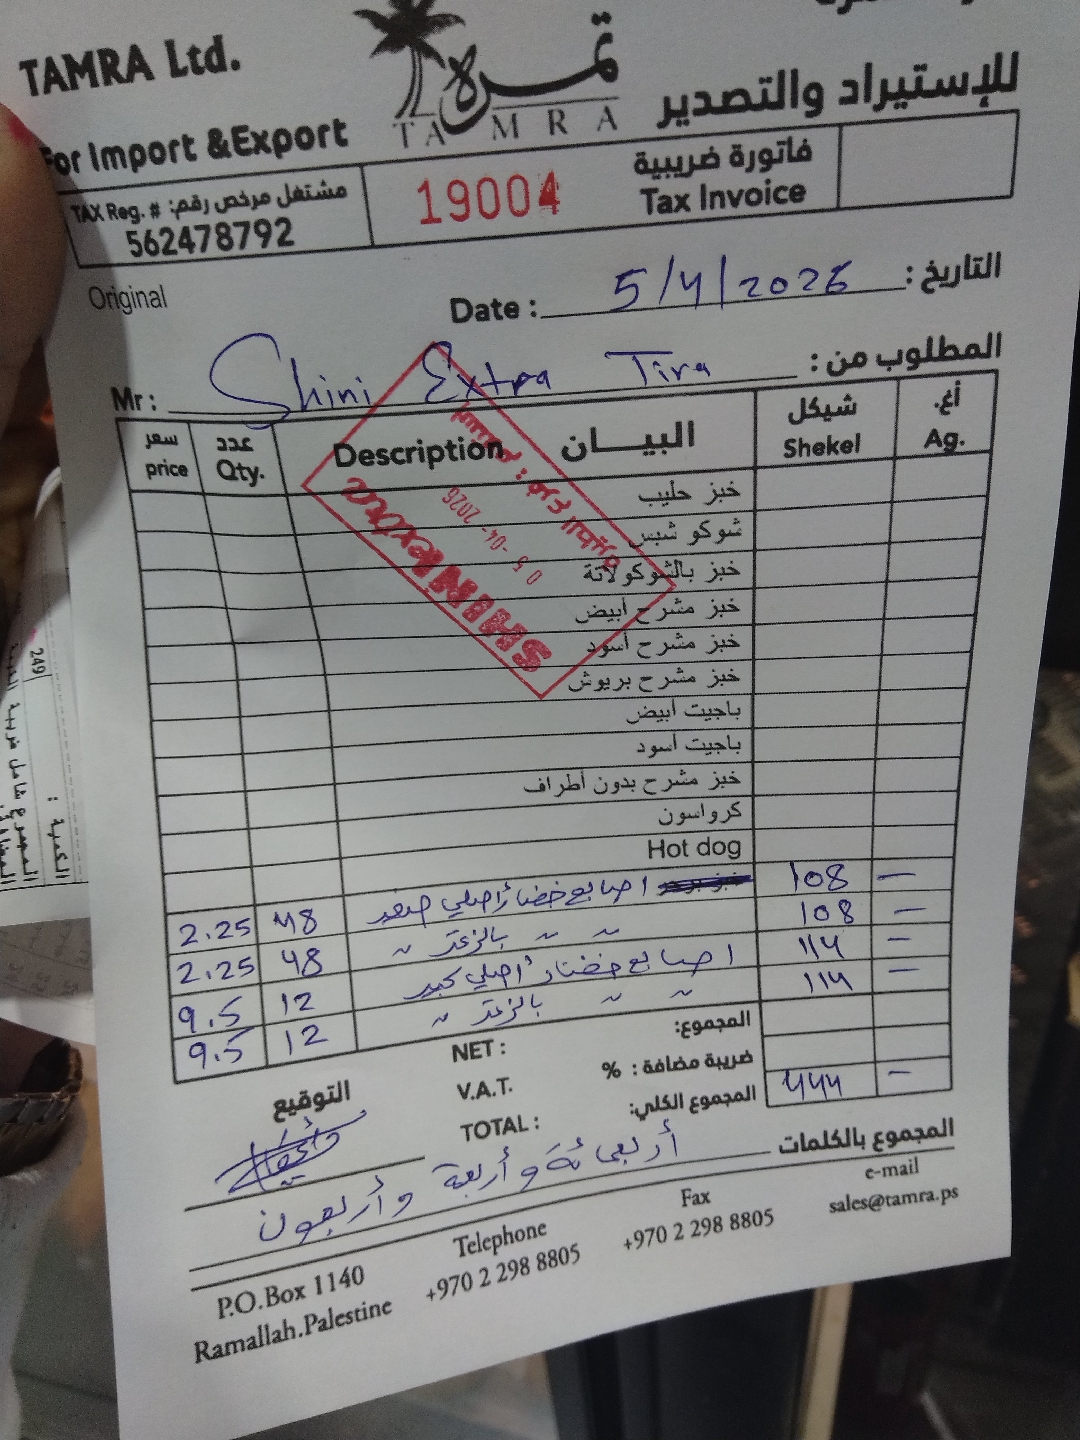 TAMRA Ltd.
For Import &Export
تمرة
TAMRA
للإستيراد والتصدير
TAX Reg. # :مشتغل مرخص رقم
562478792
19004
فاتورة ضريبية
Tax Invoice
Original
Date : 5/4/2026 التاريخ :
Mr : Shini Extra Tira المطلوب من :
سعر price عدد Qty. Description البيــــان شيكل Shekel أغ. Ag.
SHINI extra
05 -04- 2026
خبز حليب
شوكو شبس
خبز بالشوكولاتة
خبز مشرح أبيض
خبز مشرح أسود
خبز مشرح بريوش
باجيت أبيض
باجيت أسود
خبز مشرح بدون أطراف
كرواسون
Hot dog
2.25 48 اصابع خضار أصلي صغير 108 —
2.25 48 〃 〃 بالزعتر 〃 108 —
9.5 12 اصابع خضار أصلي كبير 114 —
9.5 12 〃 〃 بالزعتر 〃 114 —
NET : المجموع:
V.A.T. % ضريبة مضافة :
TOTAL : المجموع الكلي: 444 —
التوقيع
المجموع بالكلمات أربعمائة وأربعة وأربعون
P.O.Box 1140
Ramallah.Palestine
Telephone
+970 2 298 8805
Fax
+970 2 298 8805
e-mail
sales@tamra.ps
249
الكمية :